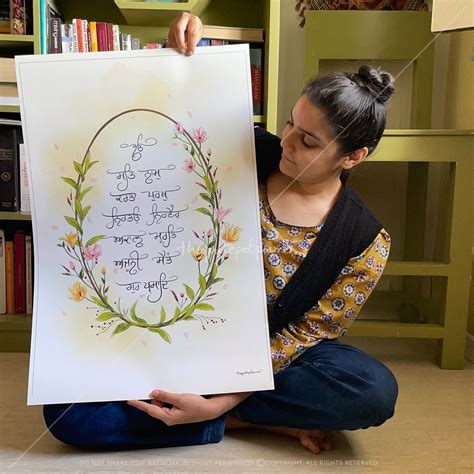 ੴ
ਸਤਿ ਨਾਮੁ
ਕਰਤਾ ਪੁਰਖੁ
ਨਿਰਭਉ ਨਿਰਵੈਰੁ
ਅਕਾਲ ਮੂਰਤਿ
ਅਜੂਨੀ ਸੈਭੰ
ਗੁਰ ਪ੍ਰਸਾਦਿ
DO NOT SHARE/EDIT ARTWORK WITHOUT PERMISSION © COPYRIGHT. ALL RIGHTS RESERVED